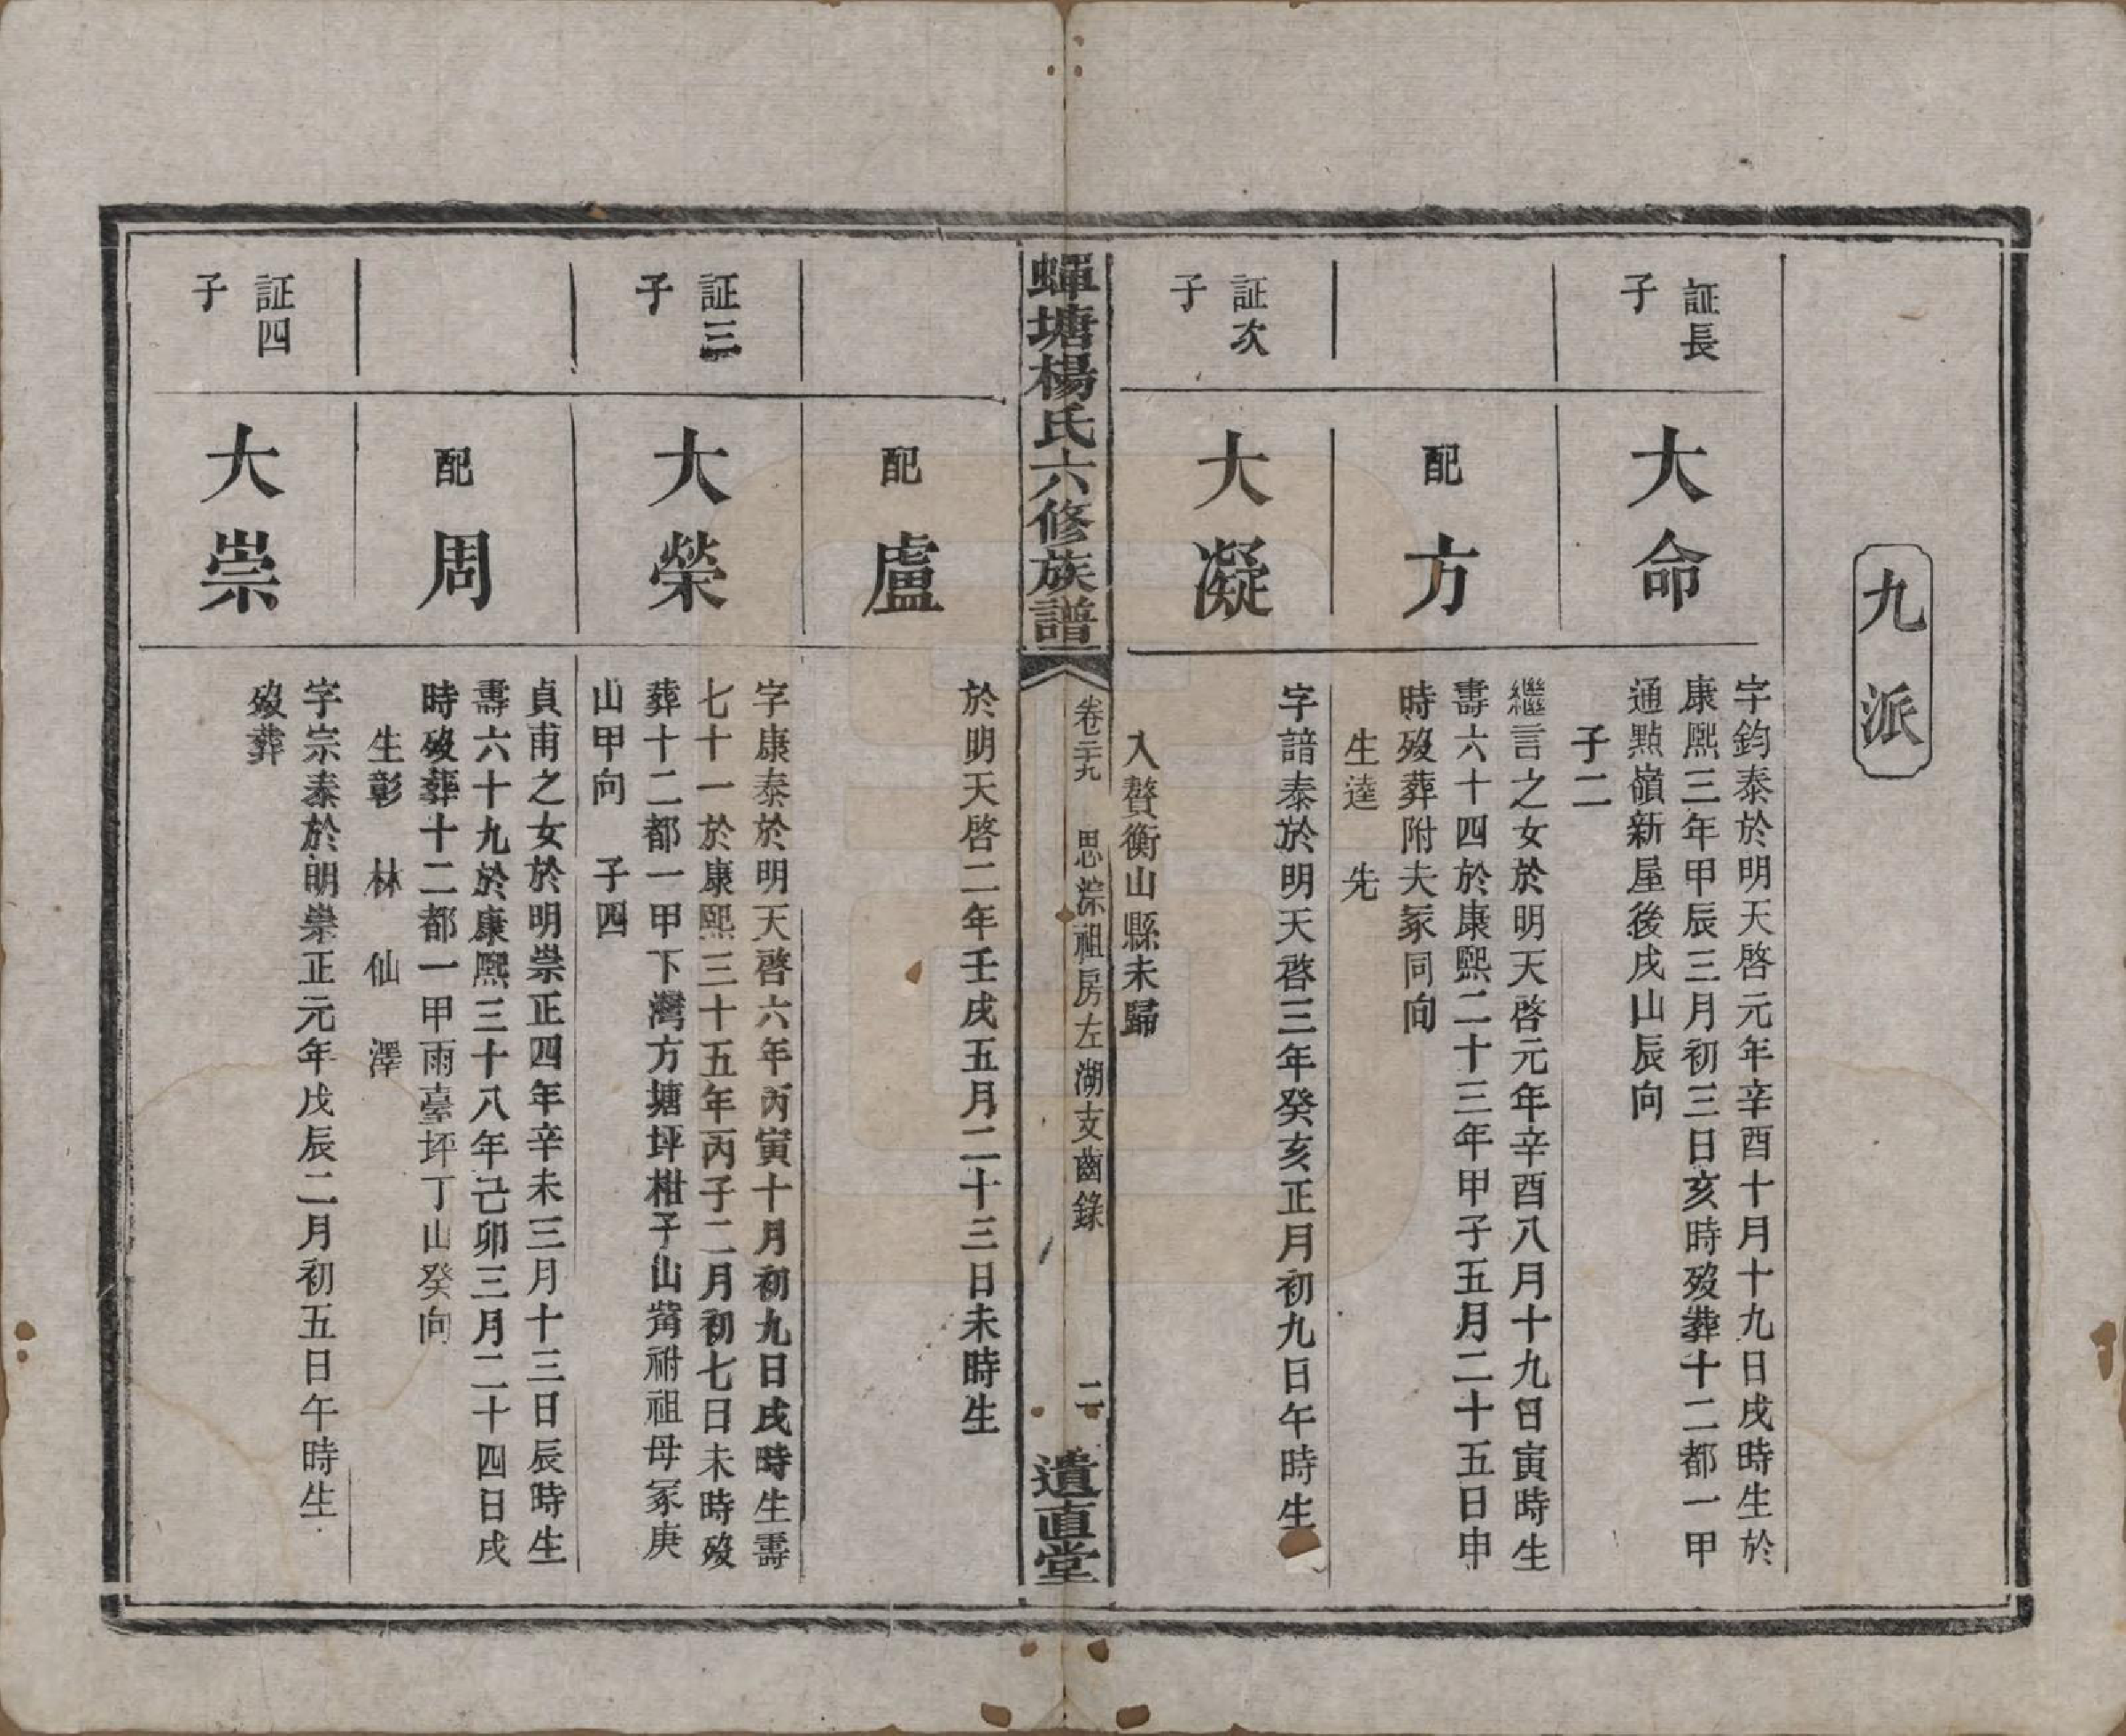 九派
証長
子
大命
字鈞泰於明天啓元年辛酉十月十九日戌時生於
康熙三年甲辰三月初三日亥時歿葬十二都一甲
通㸃嶺新屋後戌山辰向
子二
配方
繼言之女於明天啓元年辛酉八月十九日寅時生
壽六十四於康熙二十三年甲子五月二十五日申
時歿葬附夫冢同向
生達　先
証次
子
大凝
字諳泰於明天啓三年癸亥正月初九日午時生
入贅衡山縣未歸
蟬塘楊氏六修族譜
卷二十九　思淙祖房左湖支齒錄
二
遺直堂
配盧
於明天啓二年壬戌五月二十三日未時生
証三
子
大榮
字康泰於明天啓六年丙寅十月初九日戌時生壽
七十一於康熙三十五年丙子二月初七日未時歿
葬十二都一甲下灣方塘坪柑子山嘴祔祖母冢庚
山甲向　子四
配周
貞甫之女於明崇正四年辛未三月十三日辰時生
壽六十九於康熙三十八年己卯三月二十四日戌
時歿葬十二都一甲雨臺坪丁山癸向
生彰　林　仙　澤
証四
子
大崇
字宗泰於明崇正元年戊辰二月初五日午時生
歿葬